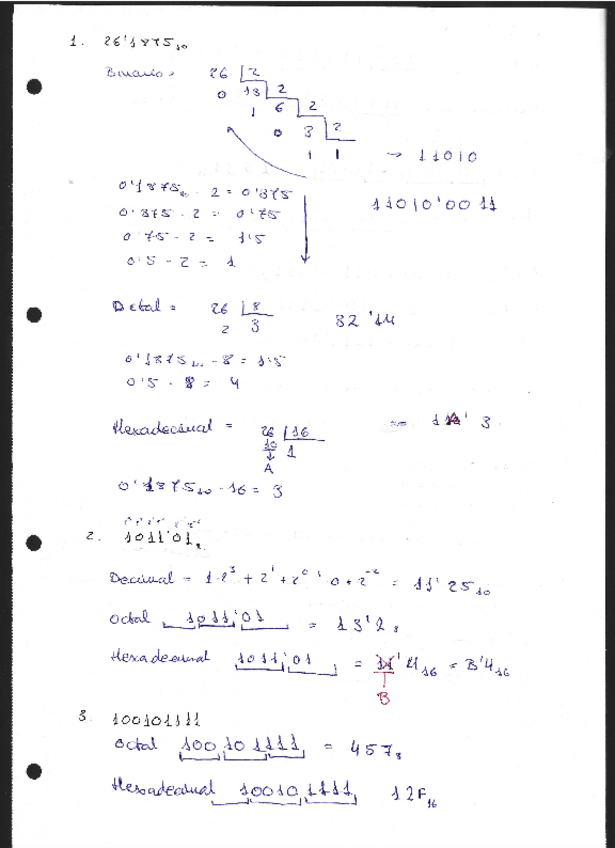 1. 26'1875₁₀
Binario = 26 | 2
0 13 | 2
1 6 | 2
0 3 | 2
1 1 → 11010
0'1875₁₀ · 2 = 0'375
0'375 · 2 = 0'75
11010'0011
0'75 · 2 = 1'5
0'5 · 2 = 1
Octal = 26 | 8
2 3
32'14
0'1875₁₀ · 8 = 1'5
0'5 · 8 = 4
Hexadecimal = 26 | 16
10 1
A
= 1A'3
0'1875₁₀ · 16 = 3
2. 1011'01₂
Decimal = 1·2³ + 2¹ + 2⁰ ' 0 + 2⁻² = 11'25₁₀
Octal 1011'01 = 13'2₈
Hexadecimal 1011'01 = 11'4₁₆ = B'4₁₆
B
3. 100101111
Octal 100 101111 = 457₈
Hexadecimal 10010 1111 12F₁₆